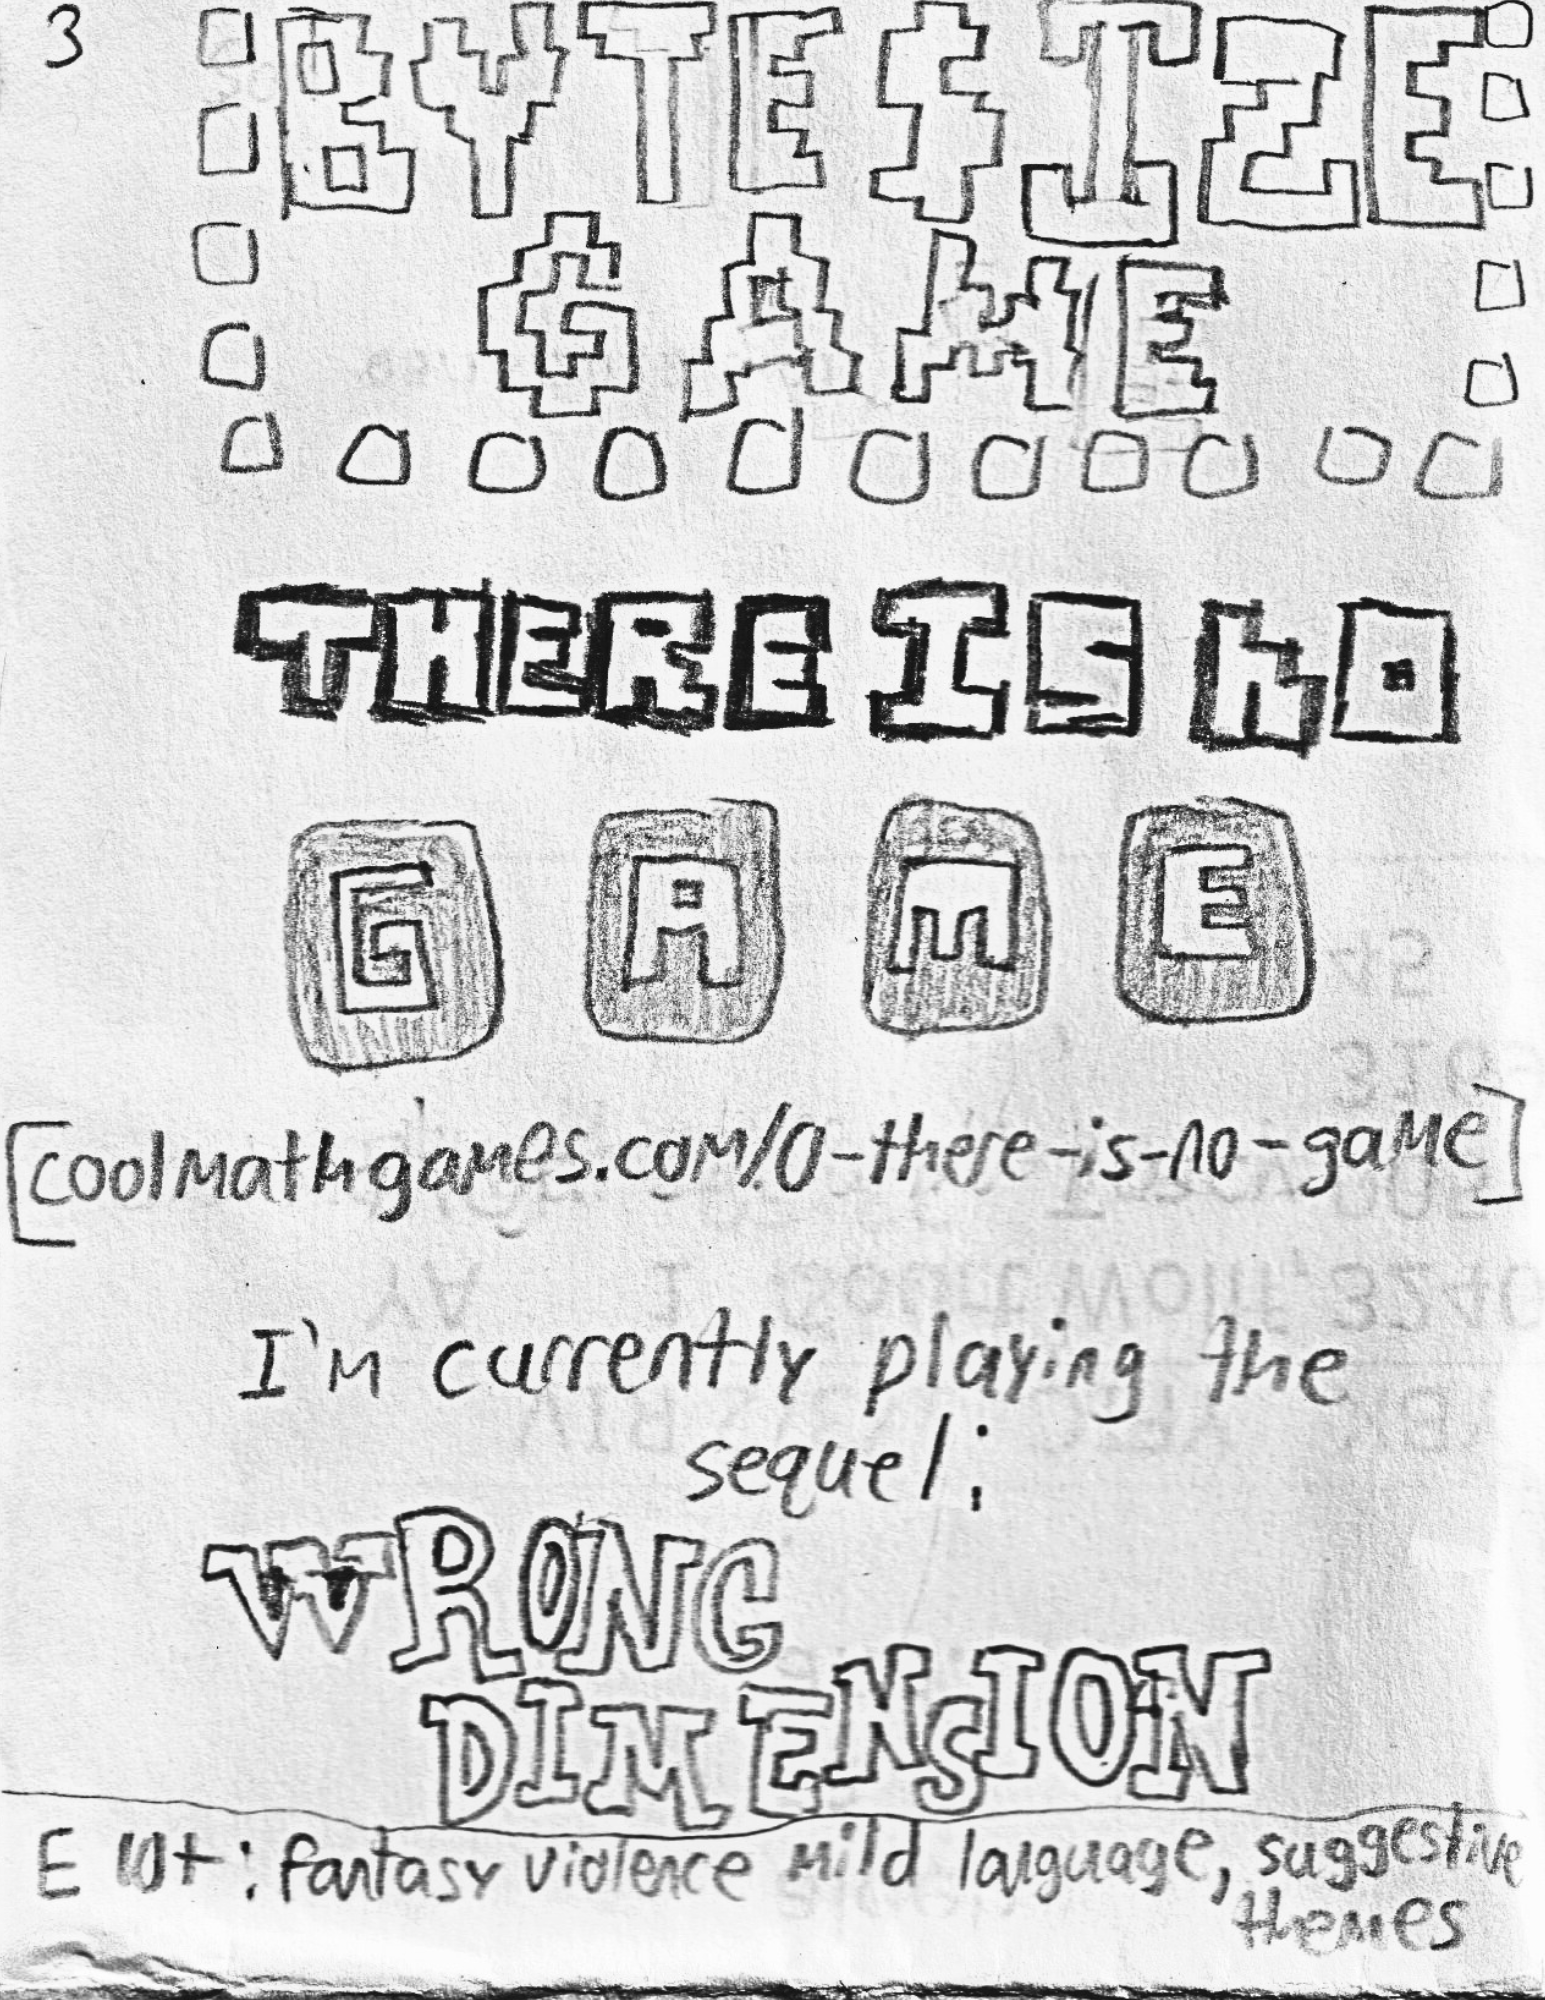 3
BYTE SIZE
GAME
THERE IS NO
GAME
[coolmathgames.com/0-there-is-no-game]
I'm currently playing the
sequel:
WRONG
DIMENSION
E 10+: fantasy violence mild language, suggestive
themes